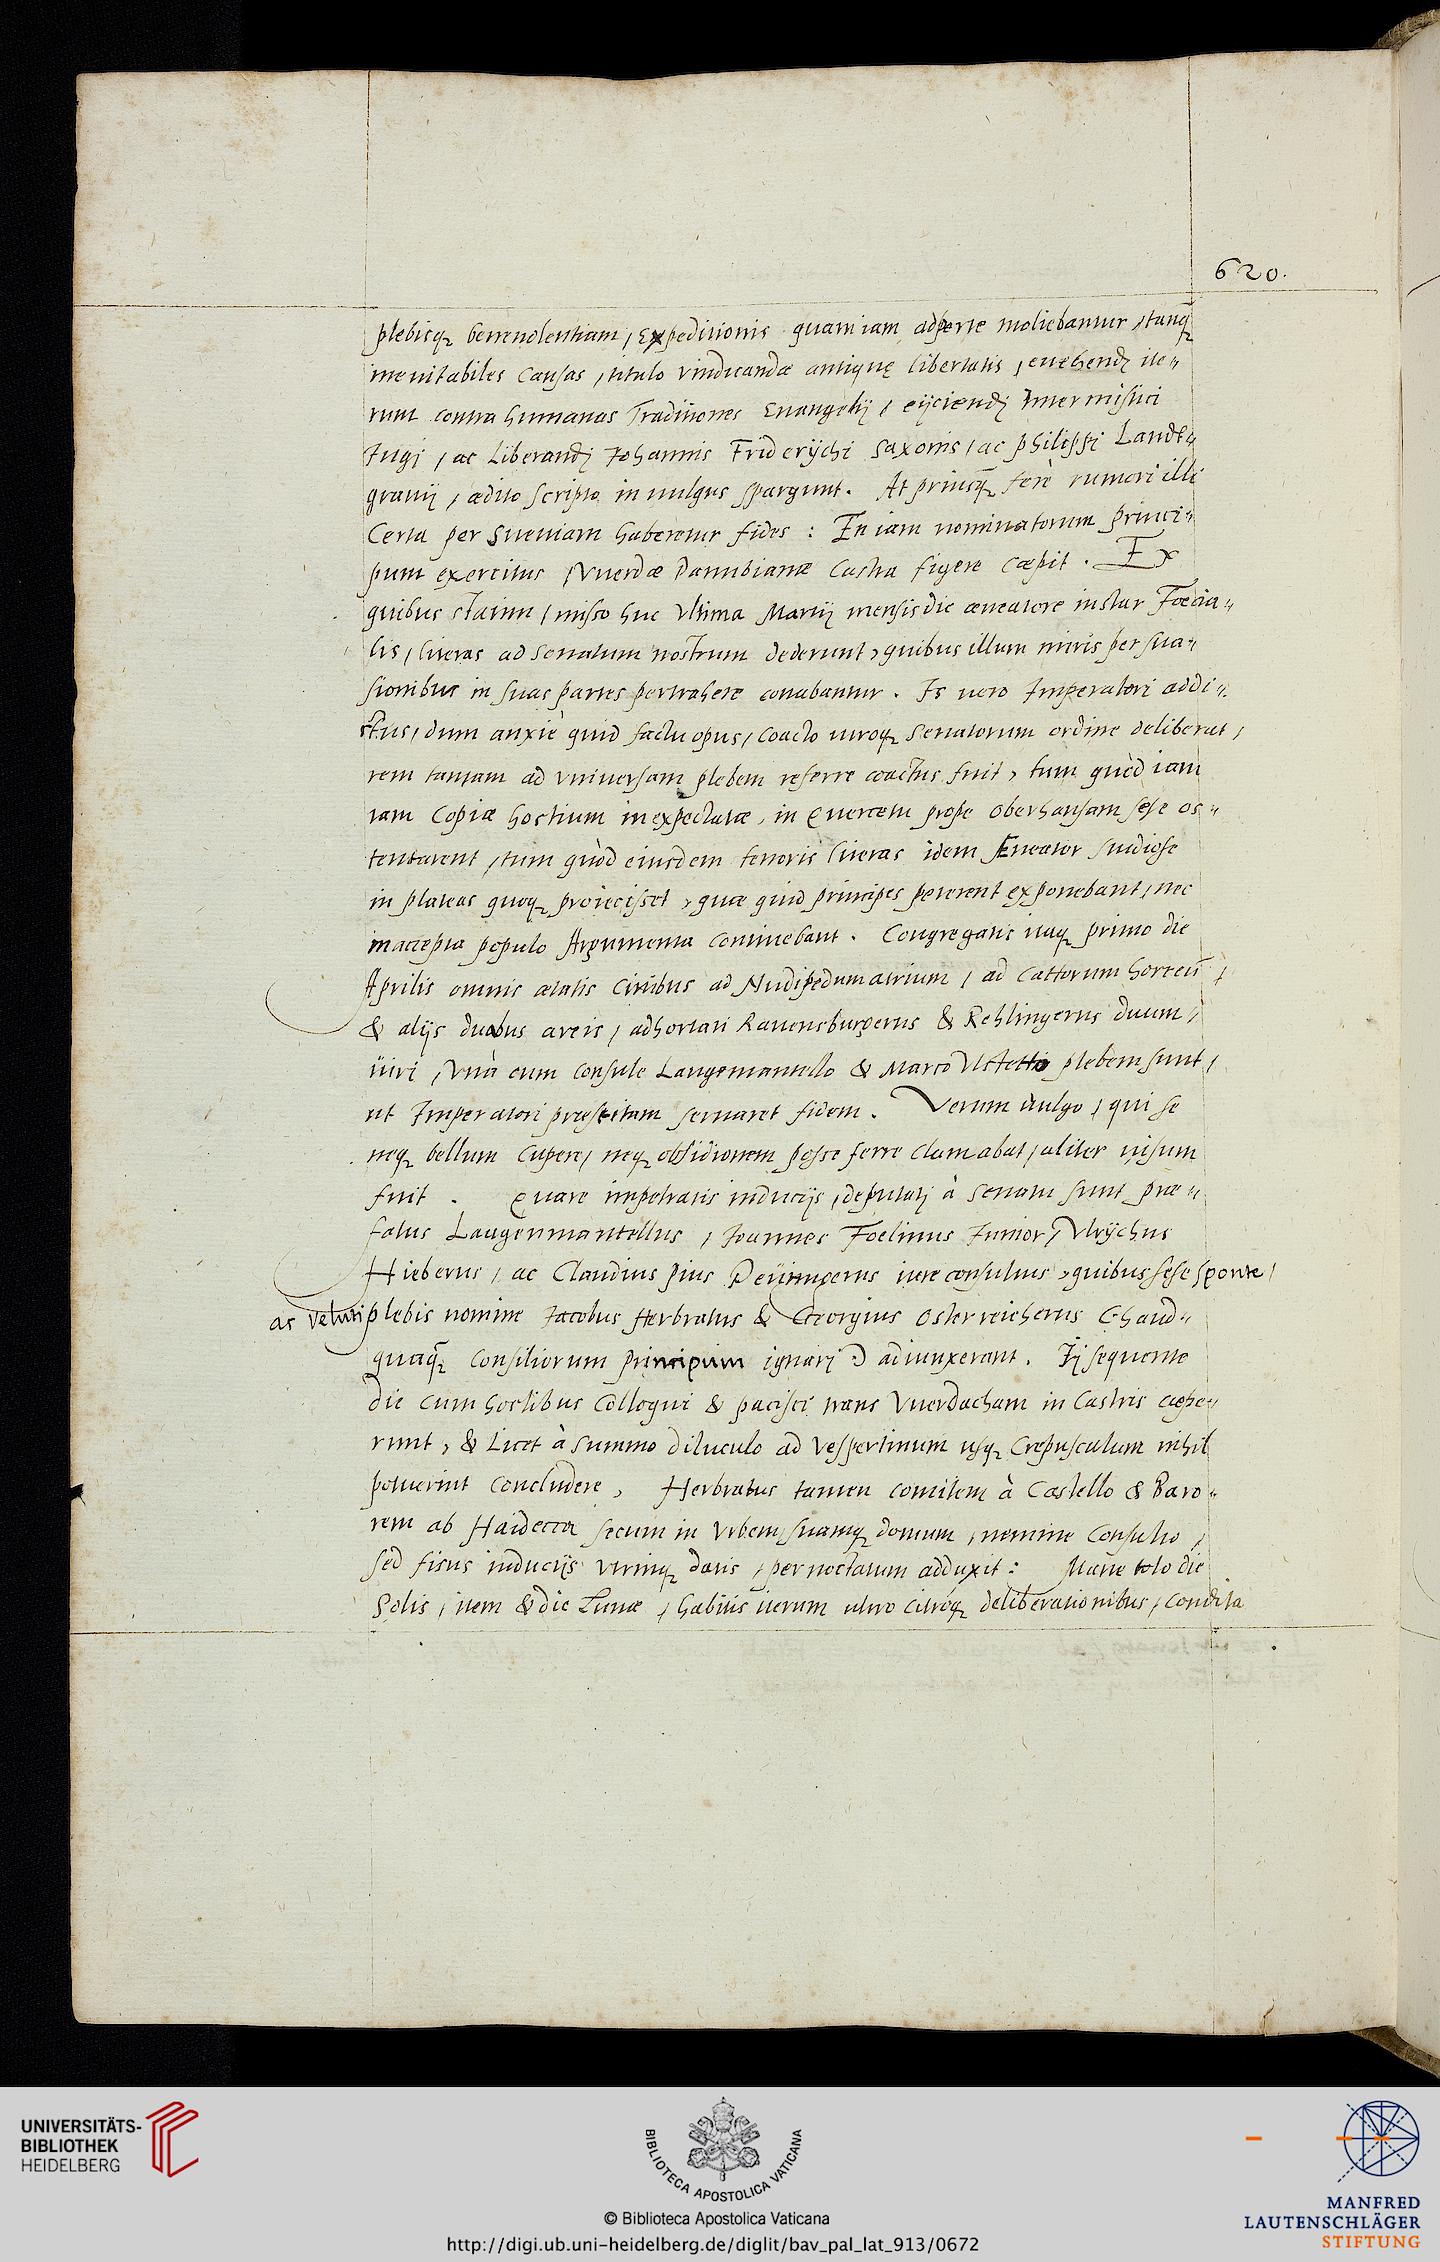 620.
plebisq₃ beneuolentiam, Expeditionis quam iam adperte moliebantur, tanq̃
ineuitabiles causas, titulo vindicandæ antiquę libertatis, euehendi ite-
rum contra humanas Traditiones Euangelij, eijciendi Intermistici
Iugi, ac Liberandi Johannis Friderÿchi Saxonis, ac philippi Landt-
grauij, ædito scripto in uulgus spargunt. At priusq̃ ferè rumori illi
Certa per Sueuiam haberetur fides: En iam nominatorum princi-
pum exercitus, Vuerdæ Danubianæ Castra figere cœpit. Ex
quibus statim, misso huc vltima Martij mensis die æneatore instar Foecia-
lis, literas ad Senatum nostrum dederunt, quibus illum miris persua-
sionibus in suas partes pertrahere conabantur. Is uero Imperatori addi-
ctus, dum anxiè quid factu opus, coacto utroq₃ Senatorum ordine deliberat,
rem tantam ad vniuersam plebem referre coactus fuit, tum quòd iam
iam Copiæ hostium inexpectatæ, in Quercetu prope Oberhausam sese os-
tentarent, tum quòd eiusdem tenoris literas idem Æneator studiose
in plateas quoq₃ proiecisset, quæ quid principes peterent exponebant, nec
inaccepta populo Argumenta continebant. Congregatis itaq₃ primo die
Aprilis omnis ætatis Ciuibus ad Nudipedum atrium, ad Cattorum horreũ,
& alijs duabus areis, adhortati Rauensburgerus & Rehlingerus duum-
uiri, vnà cum Consule Langemantello & Marco Vlstettio plebem sunt,
ut Imperatori præstitam seruaret fidem. Verum uulgo, qui se
neq₃ bellum cupere, neq₃ obsidionem posse ferre clamabat, aliter uisum
fuit. Quare impetratis inducijs, deputati à Senatu sunt præ-
fatus Langenmantellus, Joannes Foelinus Iunior, Vlrÿchus
Hieberus, ac Claudius Pius Peütingerus iureconsultus, quibus sese sponte,
ac veluti plebis nomine Jacobus Herbratus & Georgius Osterreicherus (haud-
quaq̃ Consiliorum principum ignari) adiunxerant. Ij sequente
die cum hostibus Colloqui & pacisci trans Vuerdacham in Castris cœpe-
runt, & Licet à summo diluculo ad vespertinum usq₃ Crepusculum nihil
potuerint Concludere, Herbratus tamen comitem à Castello & Baro-
nem ab Haidecca secum in Vrbem, suamq₃ domum, nemine Consulto,
sed fisus inducijs vtrinq₃ datis, pernoctatum adduxit: Mane toto die
Solis, item & die Lunæ, habitis iterum ultro citróq₃ deliberationibus, condita
UNIVERSITÄTS-
BIBLIOTHEK
HEIDELBERG
BIBLIOTECA APOSTOLICA VATICANA
© Biblioteca Apostolica Vaticana
http://digi.ub.uni-heidelberg.de/diglit/bav_pal_lat_913/0672
MANFRED
LAUTENSCHLÄGER
STIFTUNG